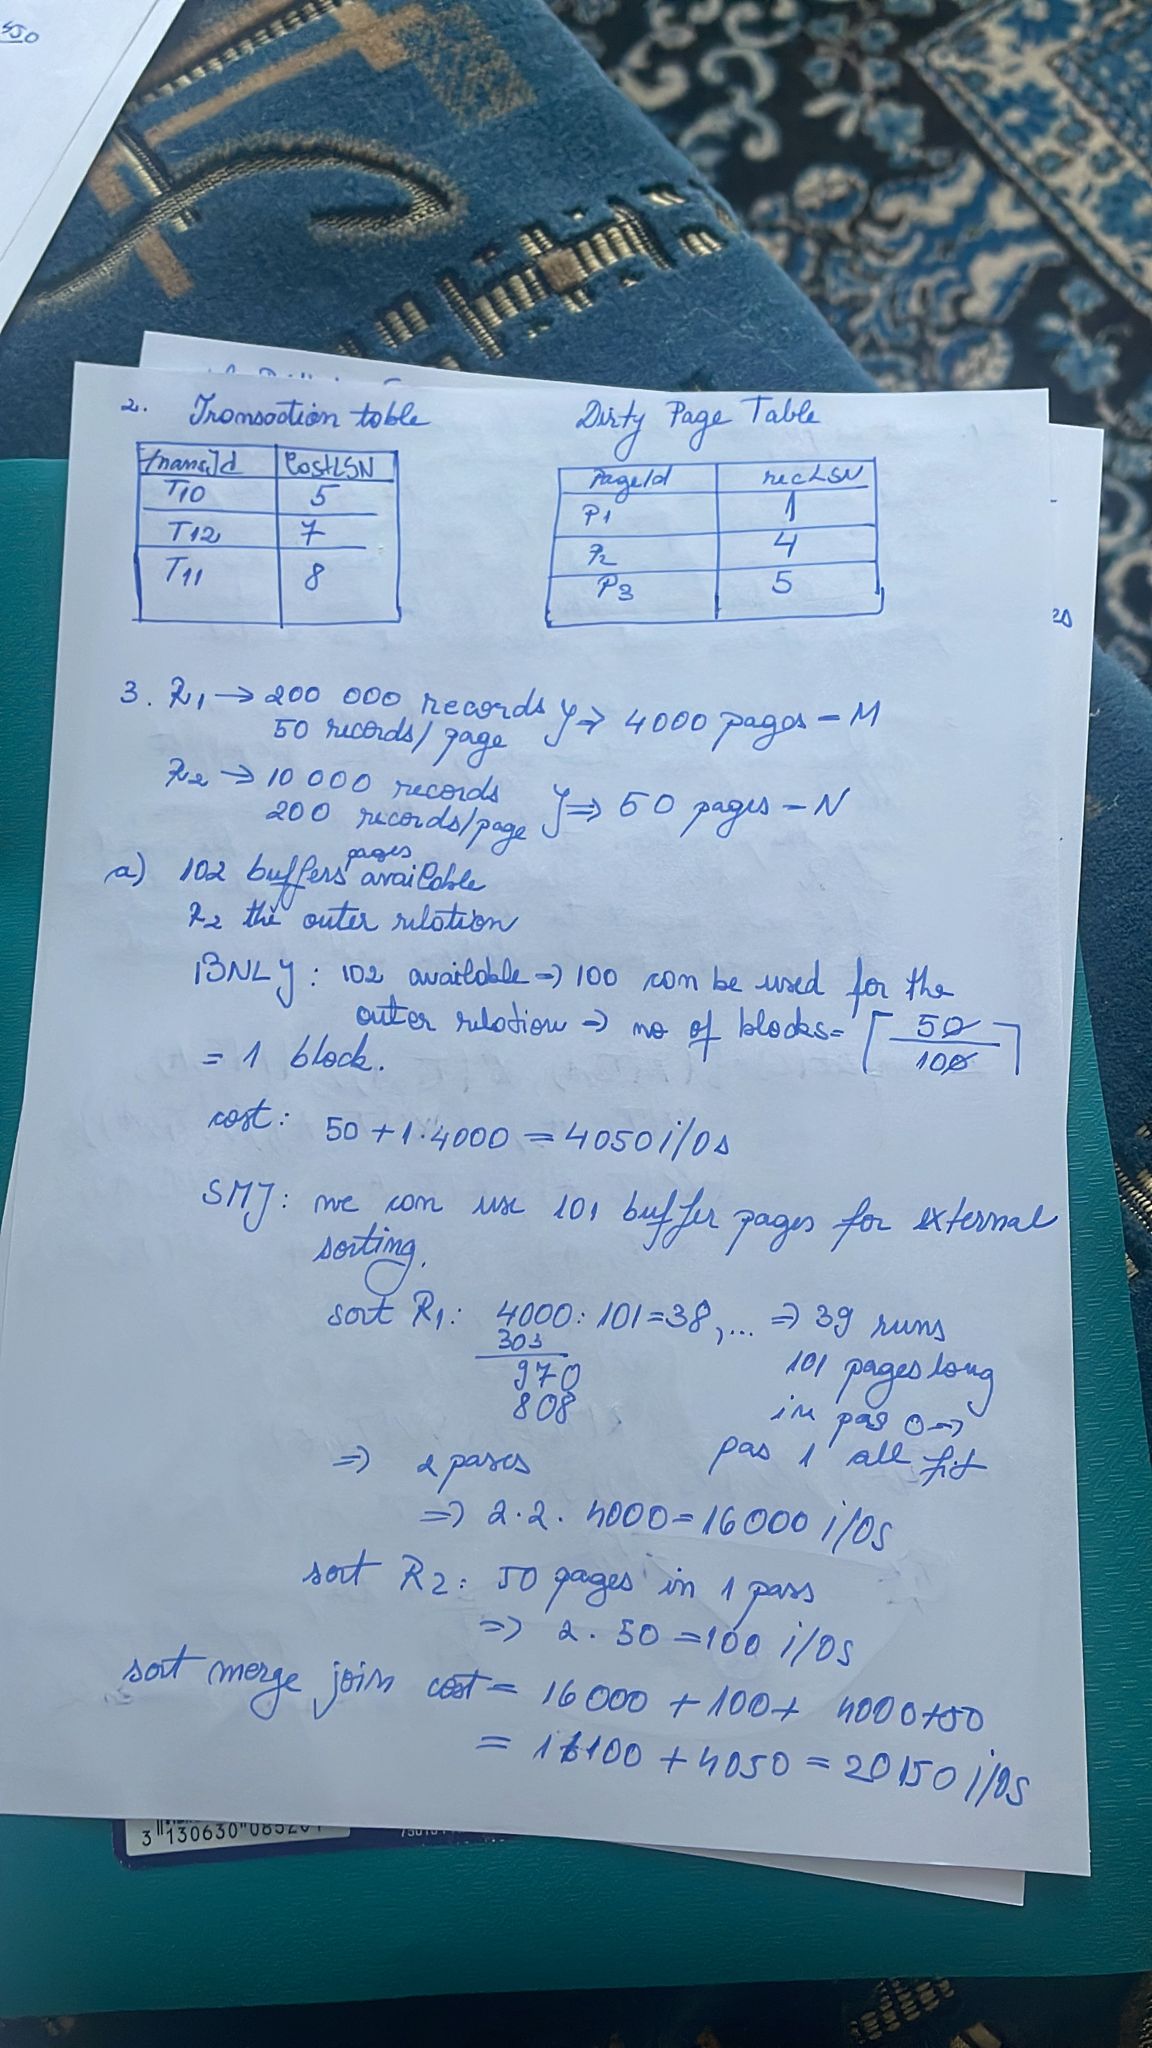 450
2. Transaction table Dirty Page Table
transId lastLSN
T10 5
T12 7
T11 8
PageId recLSN
P1 1
P2 4
P3 5
3. R1 → 200 000 records } ⇒ 4000 pages - M
50 records/page
R2 → 10 000 records } ⇒ 50 pages - N
200 records/page
a) 102 buffers pages available
R2 the outer relation
BNLJ: 102 available ⇒ 100 can be used for the
outer relation ⇒ no of blocks = ⌈50/100⌉
= 1 block.
cost: 50 + 1 · 4000 = 4050 i/Os
SMJ: we can use 101 buffer pages for external
sorting.
sort R1: 4000 : 101 = 38,... ⇒ 39 runs
303
970
808
101 pages long
in pas 0 ⇒
pas 1 all fit
⇒ 2 pases
⇒ 2 · 2 · 4000 = 16000 i/Os
sort R2: 50 pages in 1 pass
⇒ 2 · 50 = 100 i/Os
sort merge join cost = 16000 + 100 + 4000 + 50
= 16100 + 4050 = 20150 i/Os